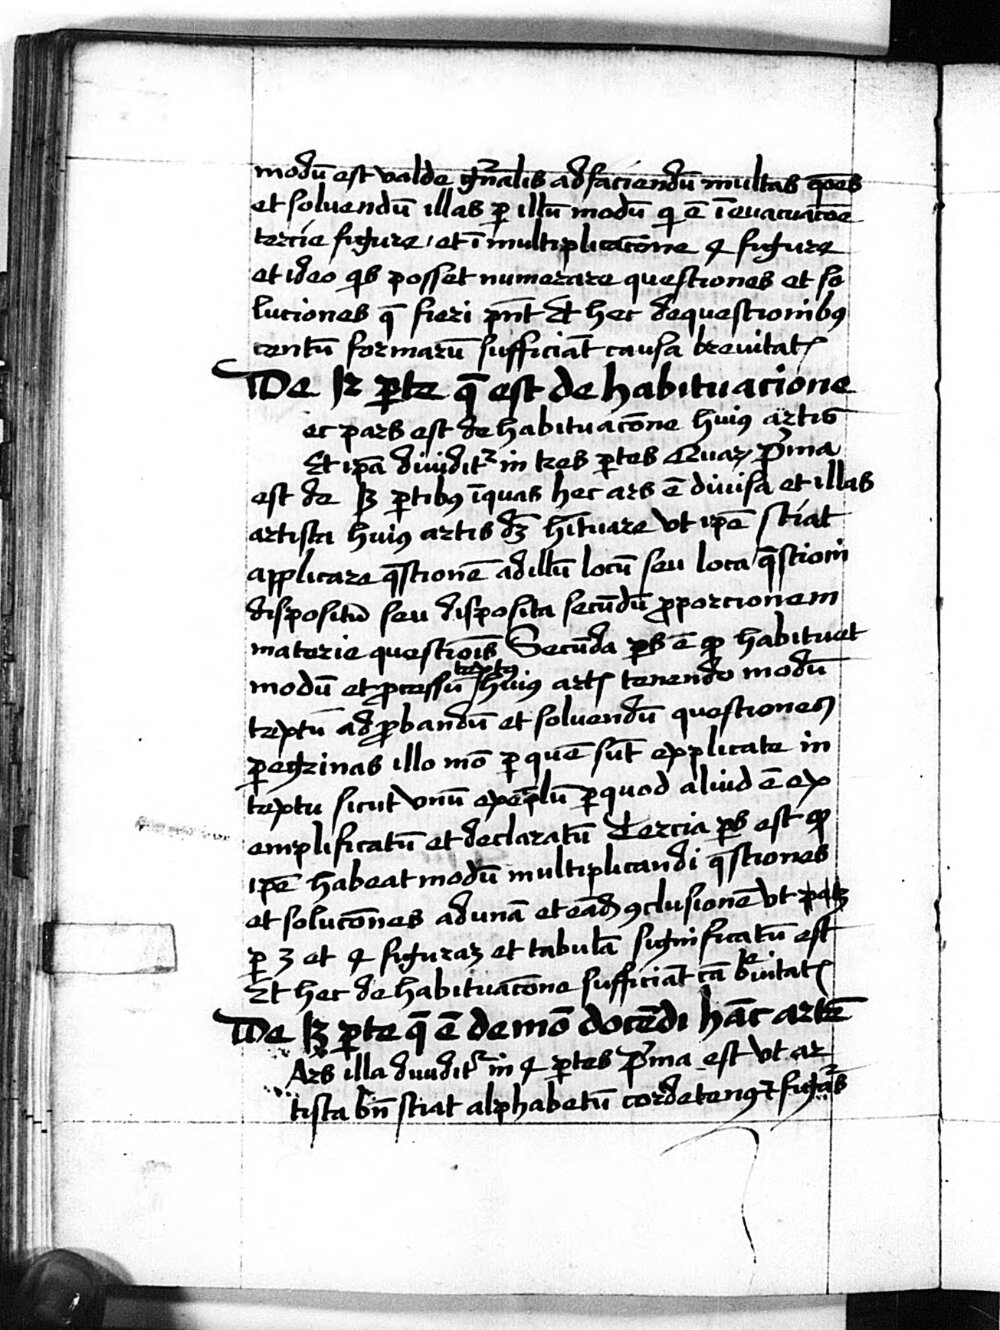 modū est valde gn̄alis ad faciendū multas q̄ones
et soluendū illas ꝑ illū modū q ē ī euacuac̄oe
tercie figure / et ī multiplicac̄one 4 figure
et ideo qis posset numerare questiones et so
luciones q̄ fieri pn̄t Et hec de questionibꝰ
centū formarū sufficiāt causa breuitatꝭ
De 12 ꝑte q̄ est de habituacione
ec pars est de habituac̄one huiꝰ artis
Et ip̄a diuiditr in tres ꝑtes Quaꝝ pima
est de 13 ꝑtibꝰ ī quas hec ars ē diuisa et illas
artista huiꝰ artis dꝫ hītuare vt ip̄e sciat
applicare q̄stionē ad illū locū seu loca q̄stioni
dispositū seu disposita secūdū ꝓporcionem
materie questiōis Secūda ꝑs ē ꝙ habituet
modū et ꝓcessū textꝰ huiꝰ artꝭ tenendo modū
textū ad ꝓbandū et soluendū questiones
ꝑegrinas illo mō ꝑ quē sūt explicate in
textu sicut vnū exēplū ꝑ quod aliud ē ex
emplificatū et declaratū Tercia ꝑs est ꝙ
ip̄e habeat modū multiplicandi q̄stiones
et soluc̄ones ad unā et eādē ꝯclusionē vt
ꝑ 3 et 4 figuraꝫ et tabulā significatū est
Et hec de habituac̄one sufficiāt cā breuitatꝭ
De 13 ꝑte q̄ ē de mō docēdi hāc artē
Ars illa diuiditr in 4 ꝑtes Pima est vt ar
tista bn̄ sciat alphabetū cordetenꝰ ⁊ figuras